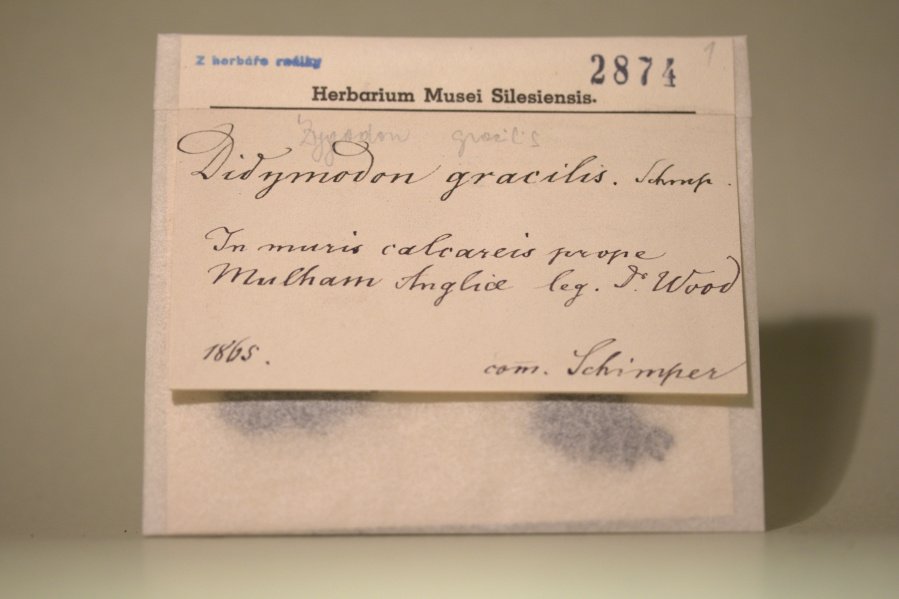 Z herbáře
2874
1
Herbarium Musei Silesiensis.
Zygodon gracilis
Didymodon gracilis. Schmp.
In muris calcareis prope
Mulham Angliæ leg. Dr. Wood
1865.
com̅. Schimper